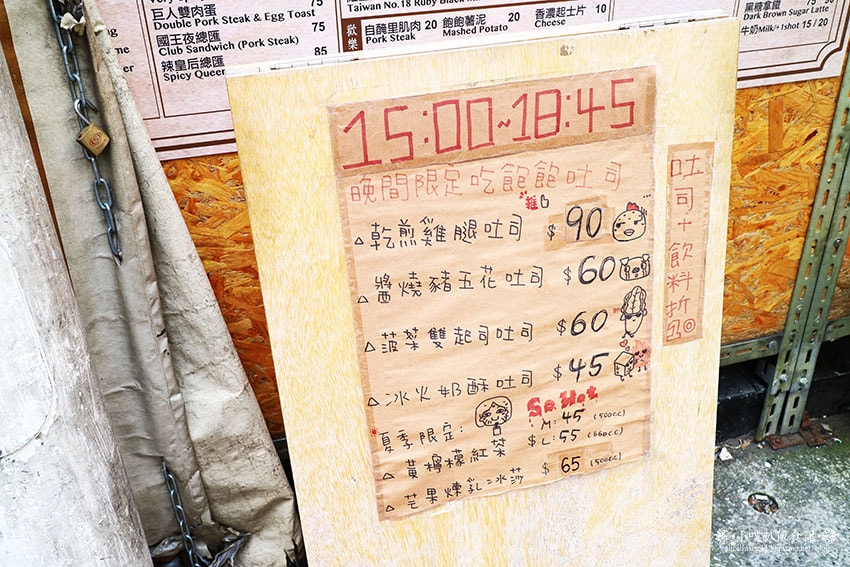 巨人雙肉蛋 75
Double Pork Steak & Egg Toast
國王夜總匯 75
Club Sandwich (Pork Steak)
辣皇后總匯 85
Spicy Quee
Taiwan No.18 Ruby Black
歡樂
自醃里肌肉 20
Pork Steak
飽飽薯泥 20
Mashed Potato
香濃起士片 10
Cheese
黑糖拿鐵
Dark Brown Sugar Latte
牛奶Milk/+1shot 15 / 20
15:00~18:45
晚間限定吃飽飽吐司
△乾煎雞腿吐司 $ 90
△醬燒豬五花吐司 $60
△菠菜雙起司吐司 $60
△冰火奶酥吐司 $45
So Hot
夏季限定: M: 45 (500cc)
△黃檸檬紅茶 $ L: 55 (660cc)
△芒果煉乳冰莎 $ 65 (500cc)
吐司+飲料折5